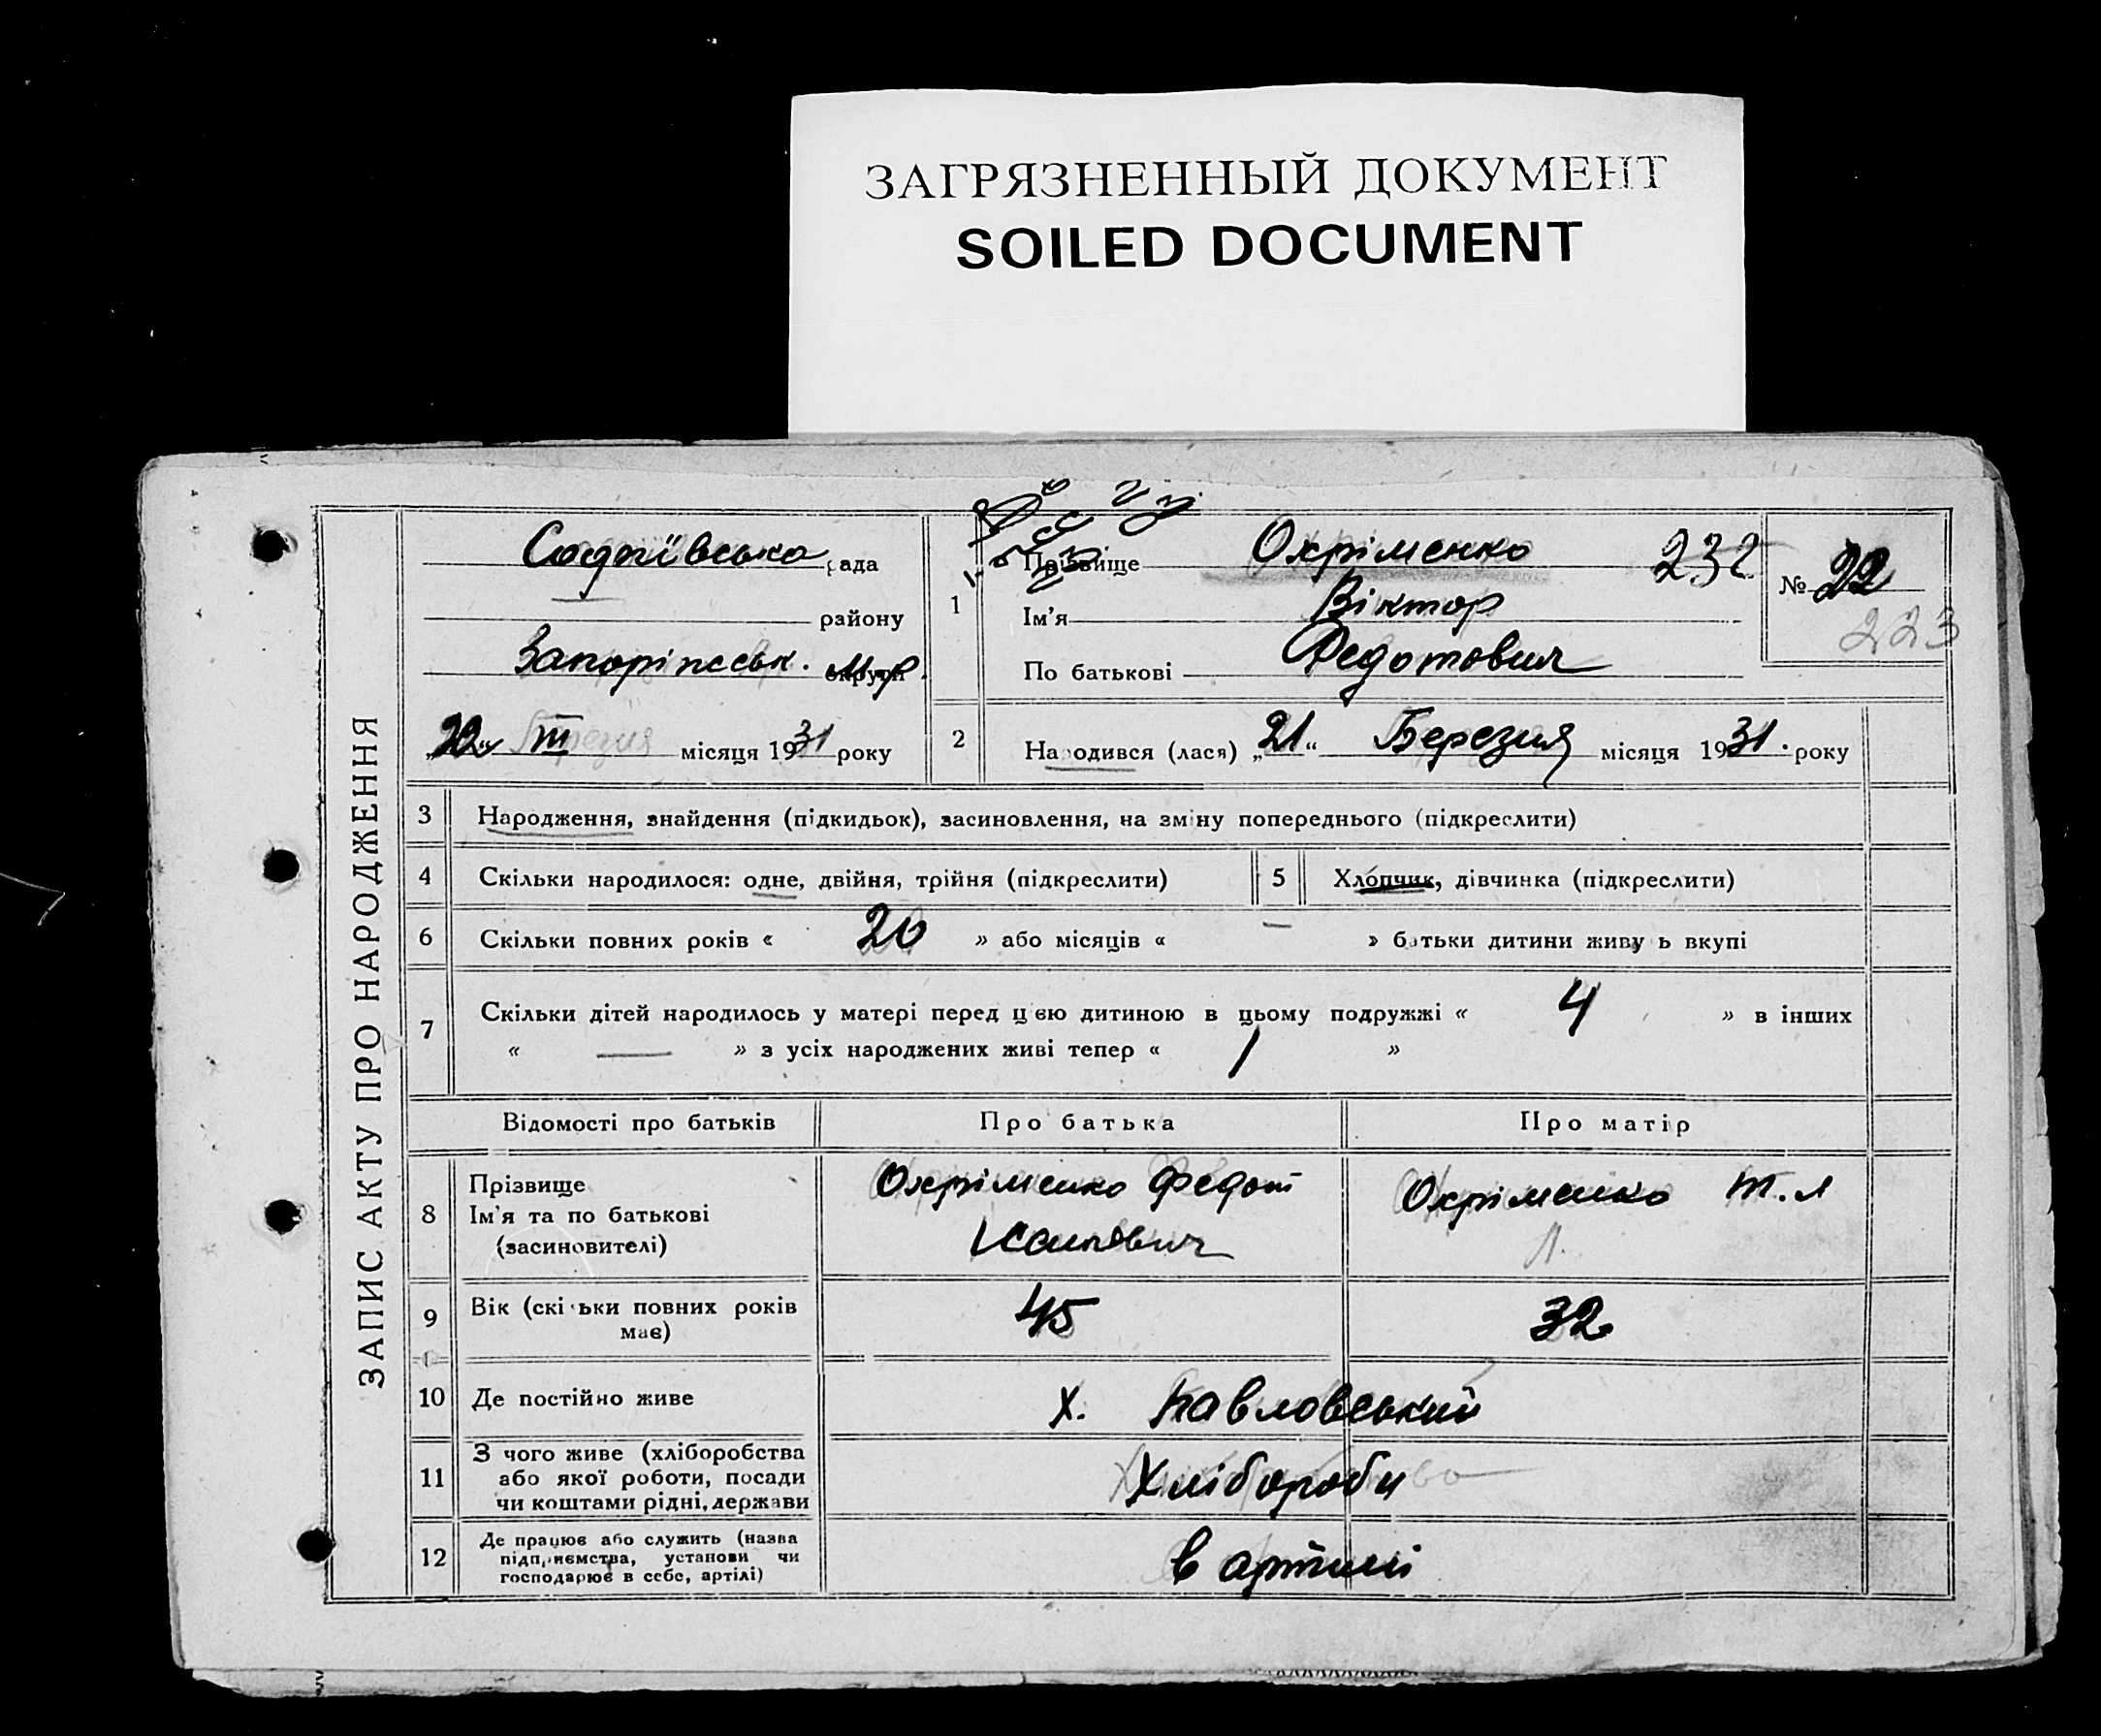 ЗАГРЯЗНЕННЫЙ ДОКУМЕНТ
SOILED DOCUMENT
ЗАПИС АКТУ ПРО НАРОДЖЕННЯ
рада
району
Запоріжськ.
III місяця 1931 року
1
Прізвище Охріменко 232
Ім'я Віктор
По батькові Федотович
№ 22
223
2 Народився (лася) „21“ Березня місяця 1931. року
3 Народження, знайдення (підкидьок), засиновлення, на зміну попереднього (підкреслити)
4 Скільки народилося: одне, двійня, трійня (підкреслити)
5 Хлопчик, дівчинка (підкреслити)
6 Скільки повних років « 20 » або місяців « — » батьки дитини живуть вкупі
7 Скільки дітей народилось у матері перед цією дитиною в цьому подружжі « 4 » в інших
« — » з усіх народжених живі тепер « 1 »
Відомості про батьків Про батька Про матір
8 Прізвище
Ім'я та по батькові
(засиновителі)
Охріменко Федот
Охріменко т.л
Л.
9 Вік (скільки повних років
має)
45 32
10 Де постійно живе х. Павловський
11 З чого живе (хліборобства
або якої роботи, посади
чи коштами рідні, держави
Хлібороби
12 Де працює або служить (назва
підприємства, установи чи
господарює в себе, артілі)
в артилі